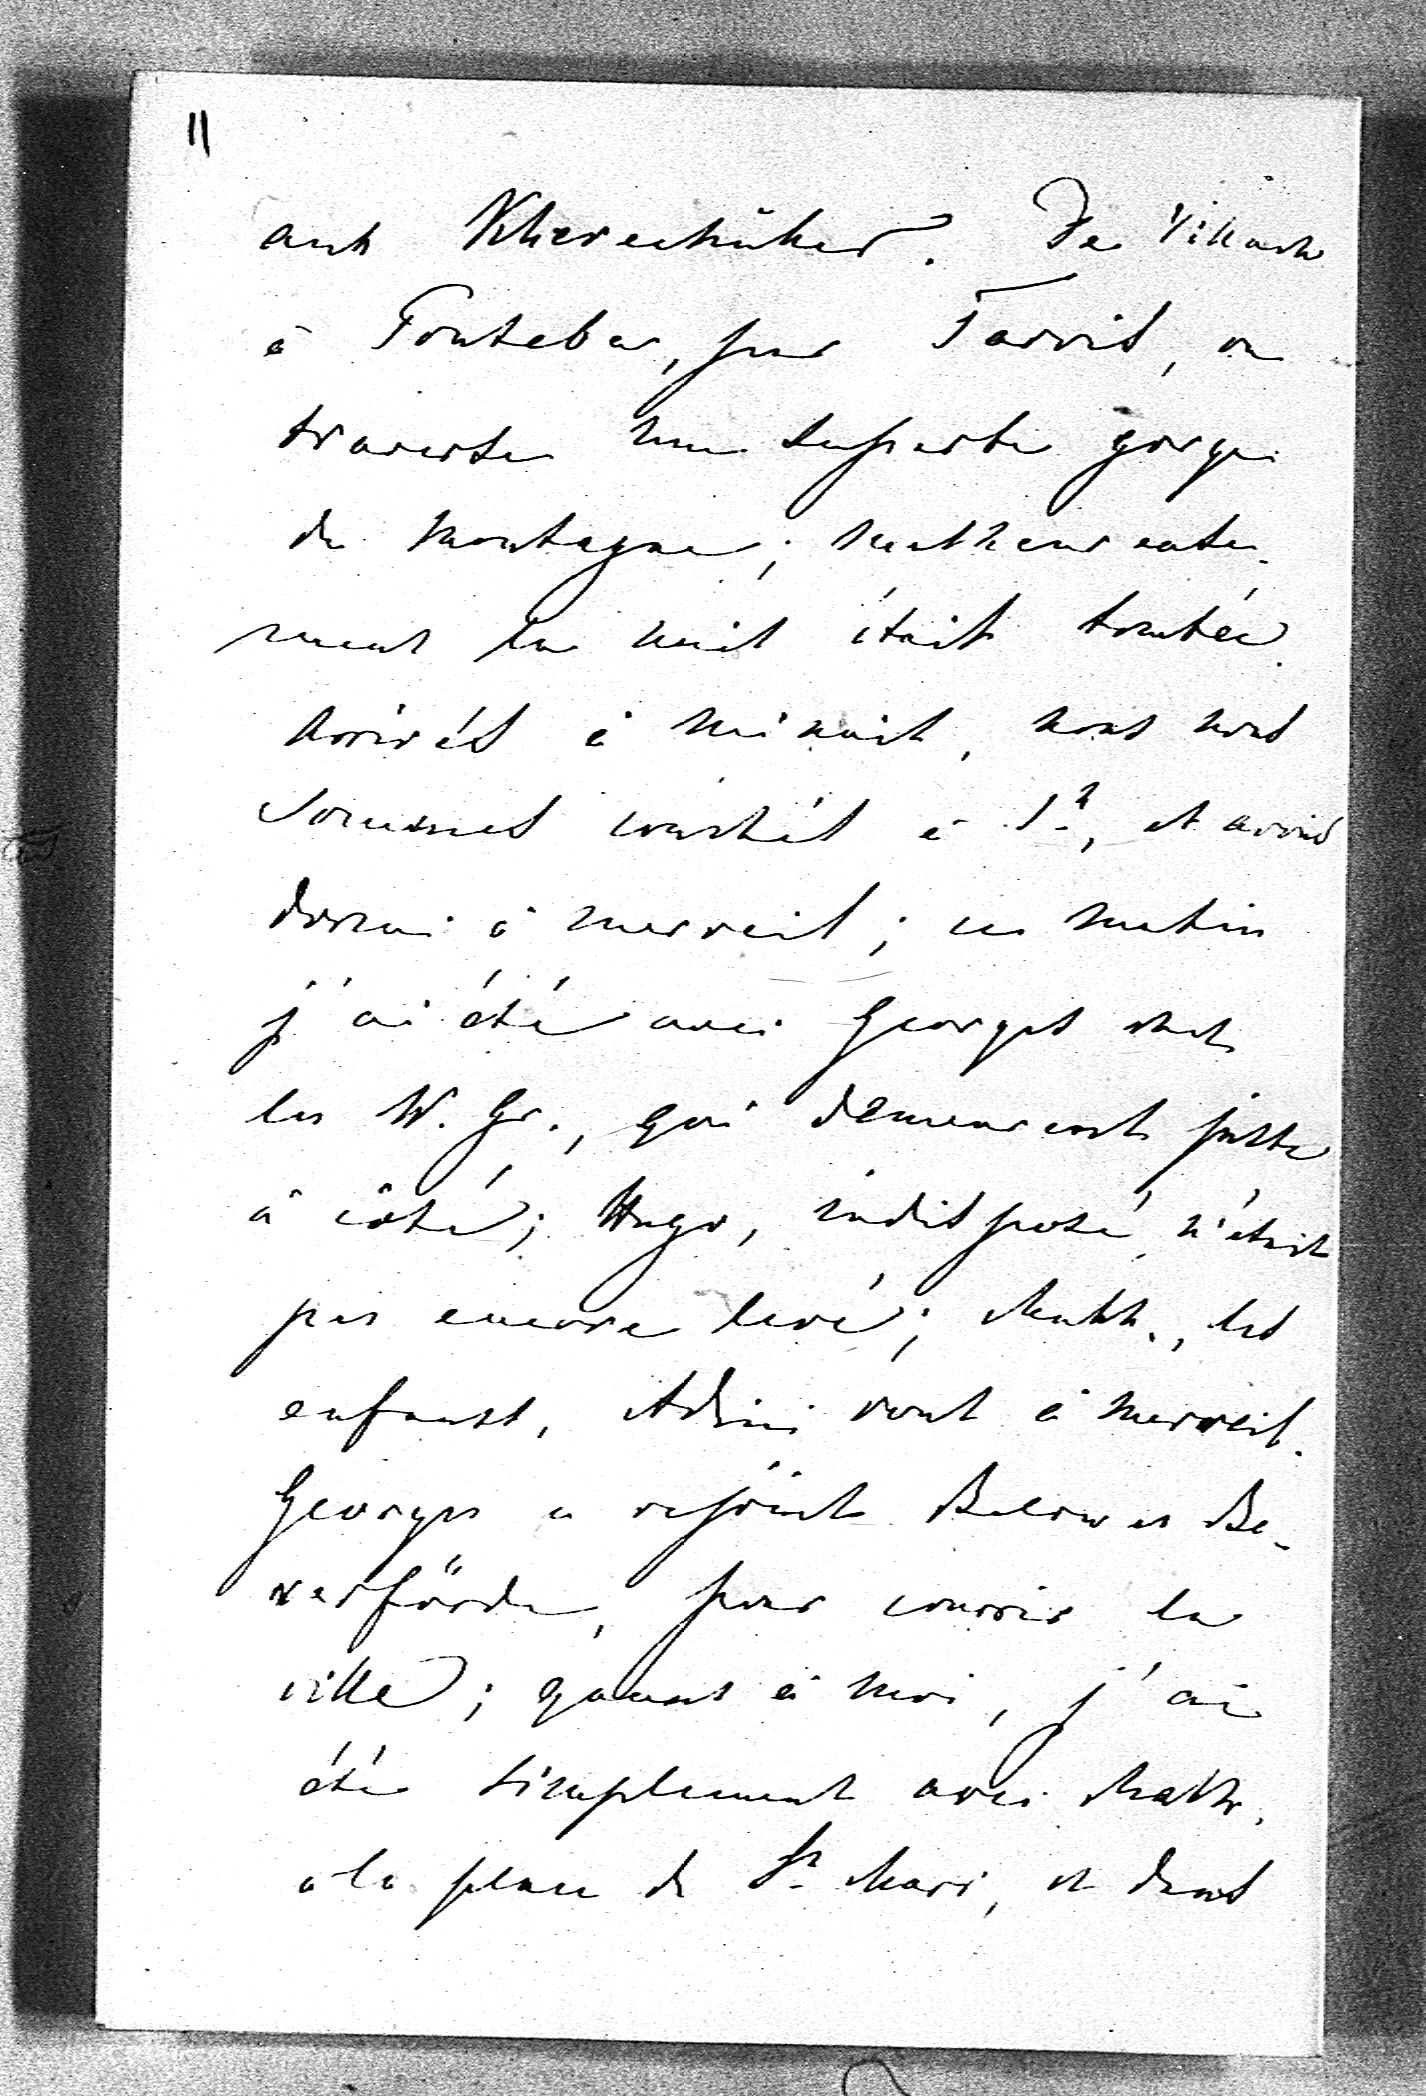 11
aux Khevenhüller. De Villach
à Pontebba, par Tarvis, on
traverse une superbe gorge
de montagne; malheureuse-
ment la nuit était tombée.
Arrivés à minuit, nous nous
sommes couchés à 1h, et avons
dormi à merveil; ce matin
j'ai été avec Georges chez
les W. Gr., qui demeurent juste
à côté; Hugo, indisposé, n'était
pas encore levé; Math., les
enfants, Adini vont à merveil.
Georges a rejoint Below et Be-
verförde, pour courrir la
ville; quant à moi, j'ai
été simplement avec Math.
à la place de St Marc, et dans